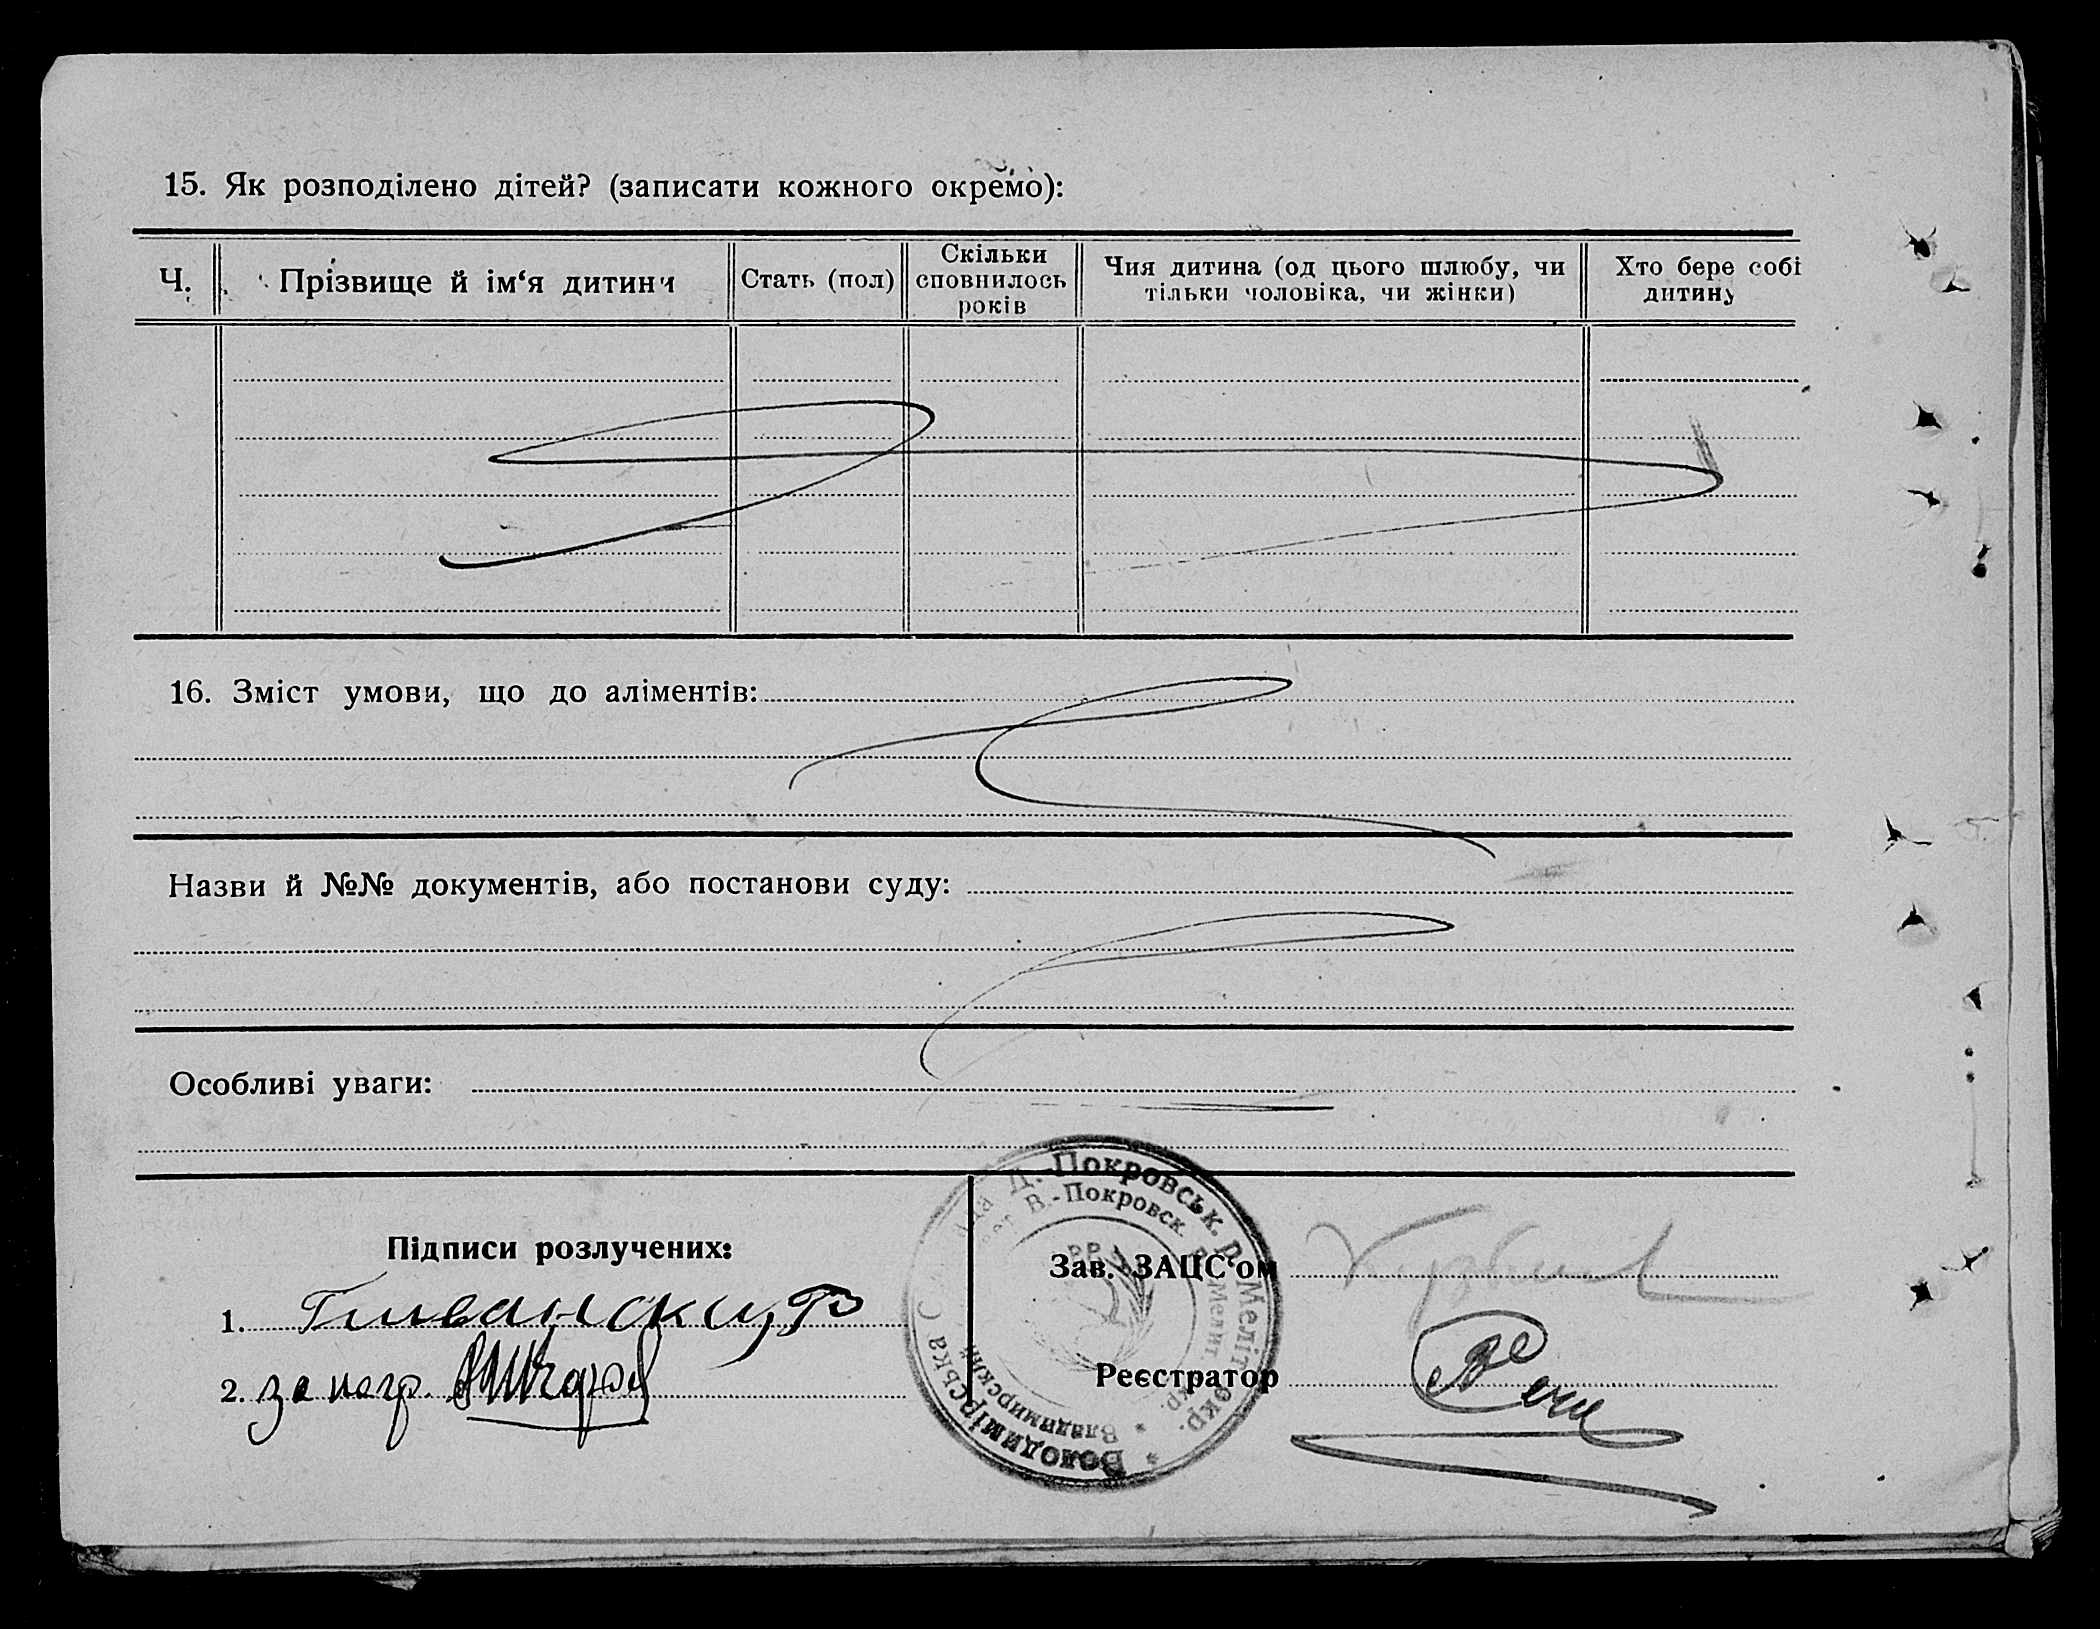 15. Як розподілено дітей? (записати кожного окремо):
Ч.
Прізвище й ім‘я дитини
Стать (пол)
Скільки
сповнилось
років
Чия дитина (од цього шлюбу, чи
тільки чоловіка, чи жінки)
Хто бере собі
дитину
16. Зміст умови, що до аліментів:
Назви й №№ документів, або постанови суду:
Особливі уваги:
Підписи розлучених:
1.
2. за негр.
Зав. ЗАЦС‘ом
Реєстратор
Володимірська С Рада Д.-Покровськ. р. Меліт. окр.
Владимирский В.-Покровск. р. Мелит. окр.